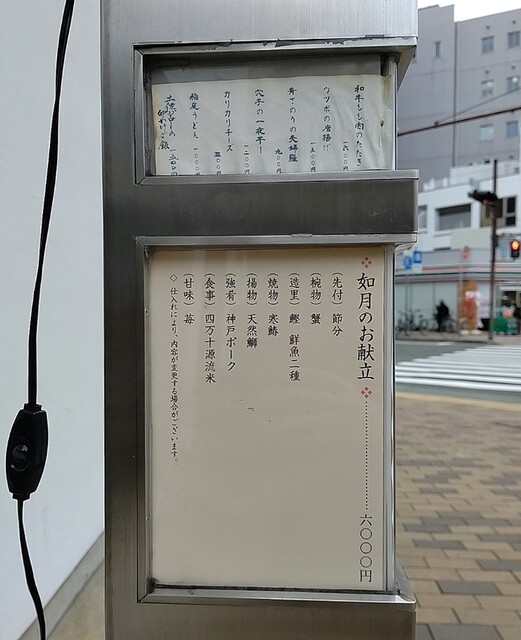 和牛もも肉のたたき 一六〇〇
ウツボの唐揚げ 一五〇〇
青さのりの天婦羅 九〇〇
穴子の一夜干し 一二〇〇
カリカリチーズ 五〇〇
稲庭うどん 一〇〇〇
卵かけご飯
如月のお献立 六〇〇〇円
(先付)節分
(椀物)蟹
(造里)鰹 鮮魚二種
(焼物)寒鰆
(揚物)天然鰤
(強肴)神戸ポーク
(食事)四万十源流米
(甘味)苺
◇仕入れにより、内容が変更する場合がございます。